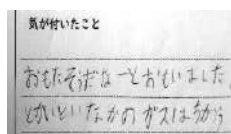 気が付いたこと
おもたそうだなーとおもいました
とかいといなかの ガスはちがう